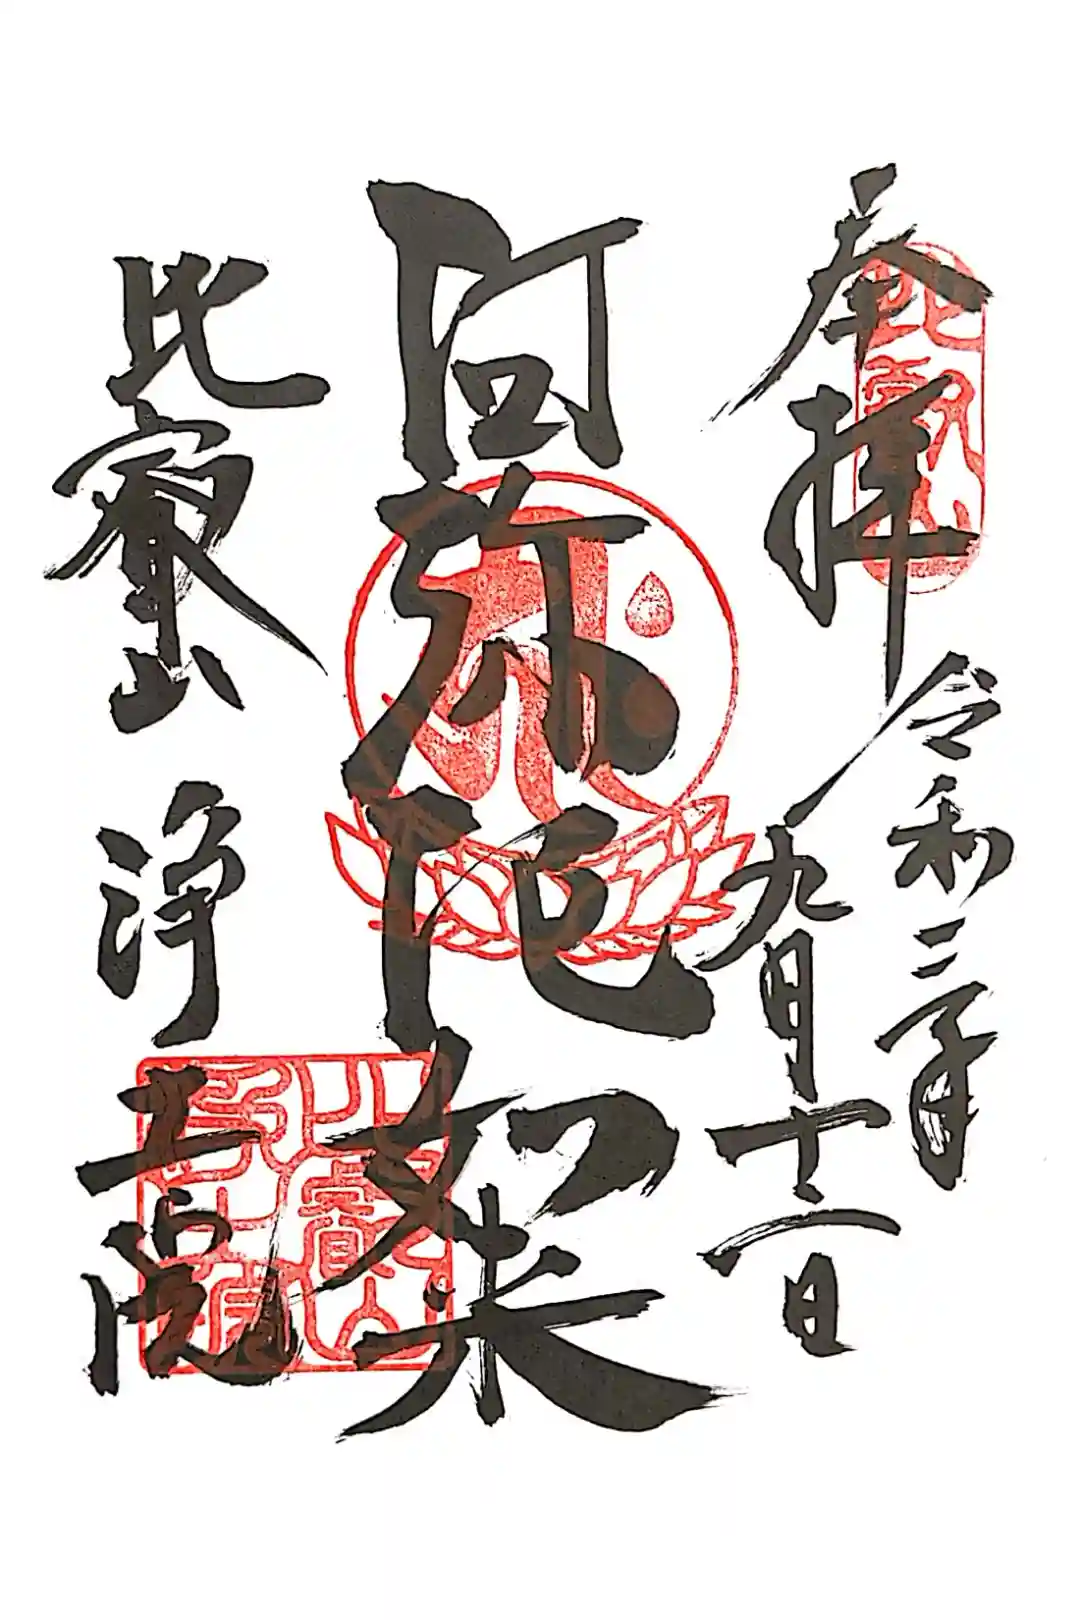 奉拝
令和三年
九月十二日
阿弥陀如来
比叡山 浄土院
比叡山